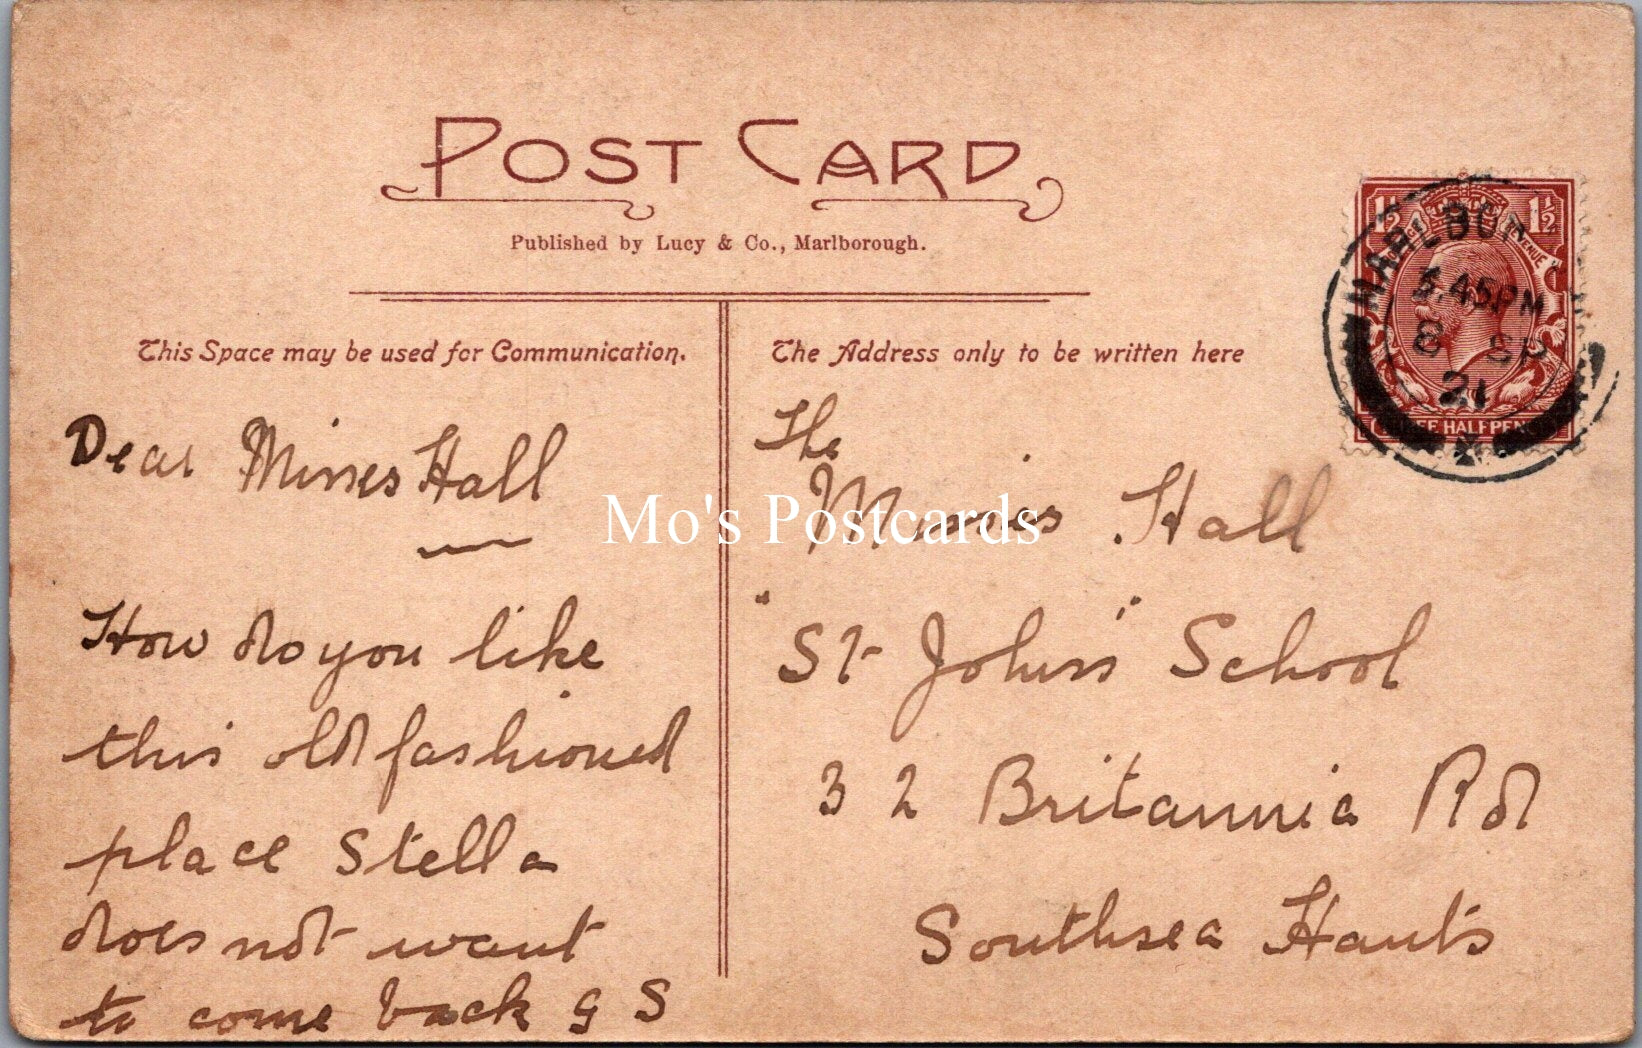 POST CARD
Published by Lucy & Co., Marlborough.
This Space may be used for Communication.
The Address only to be written here
Dear Misses Hall
How do you like
this old fashioned
place Stella
does not want
to come back G S
The
Misses Hall
"St John's" School
32 Britannia Rd
Southsea Hants
1½ 1½
POSTAGE REVENUE
THREE HALFPENCE
MARLBOR
5.45PM
8 SP
21
Mo's Postcards